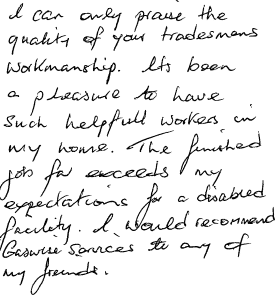 I can only praise the
quality of your tradesmans
workmanship. Its been
a pleasure to have
such helpfull workers in
my home. The finished
job far exceeds my
expectations for a disabled
facility. I would recommend
Gaswise Services to any of
my friends.